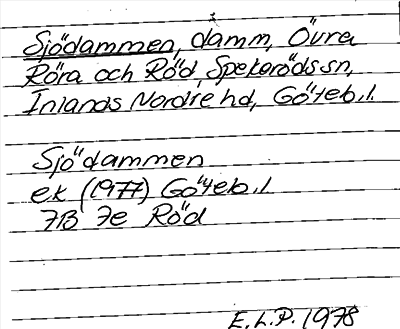 Sjödammen, damm, Övra
Röra och Röd, Spekerödssn,
Inlands Nordre hd, Göteb.l.
Sjödammen
ek (1977) Göteb.l.
7B 7e Röd
E.L.P. 1978